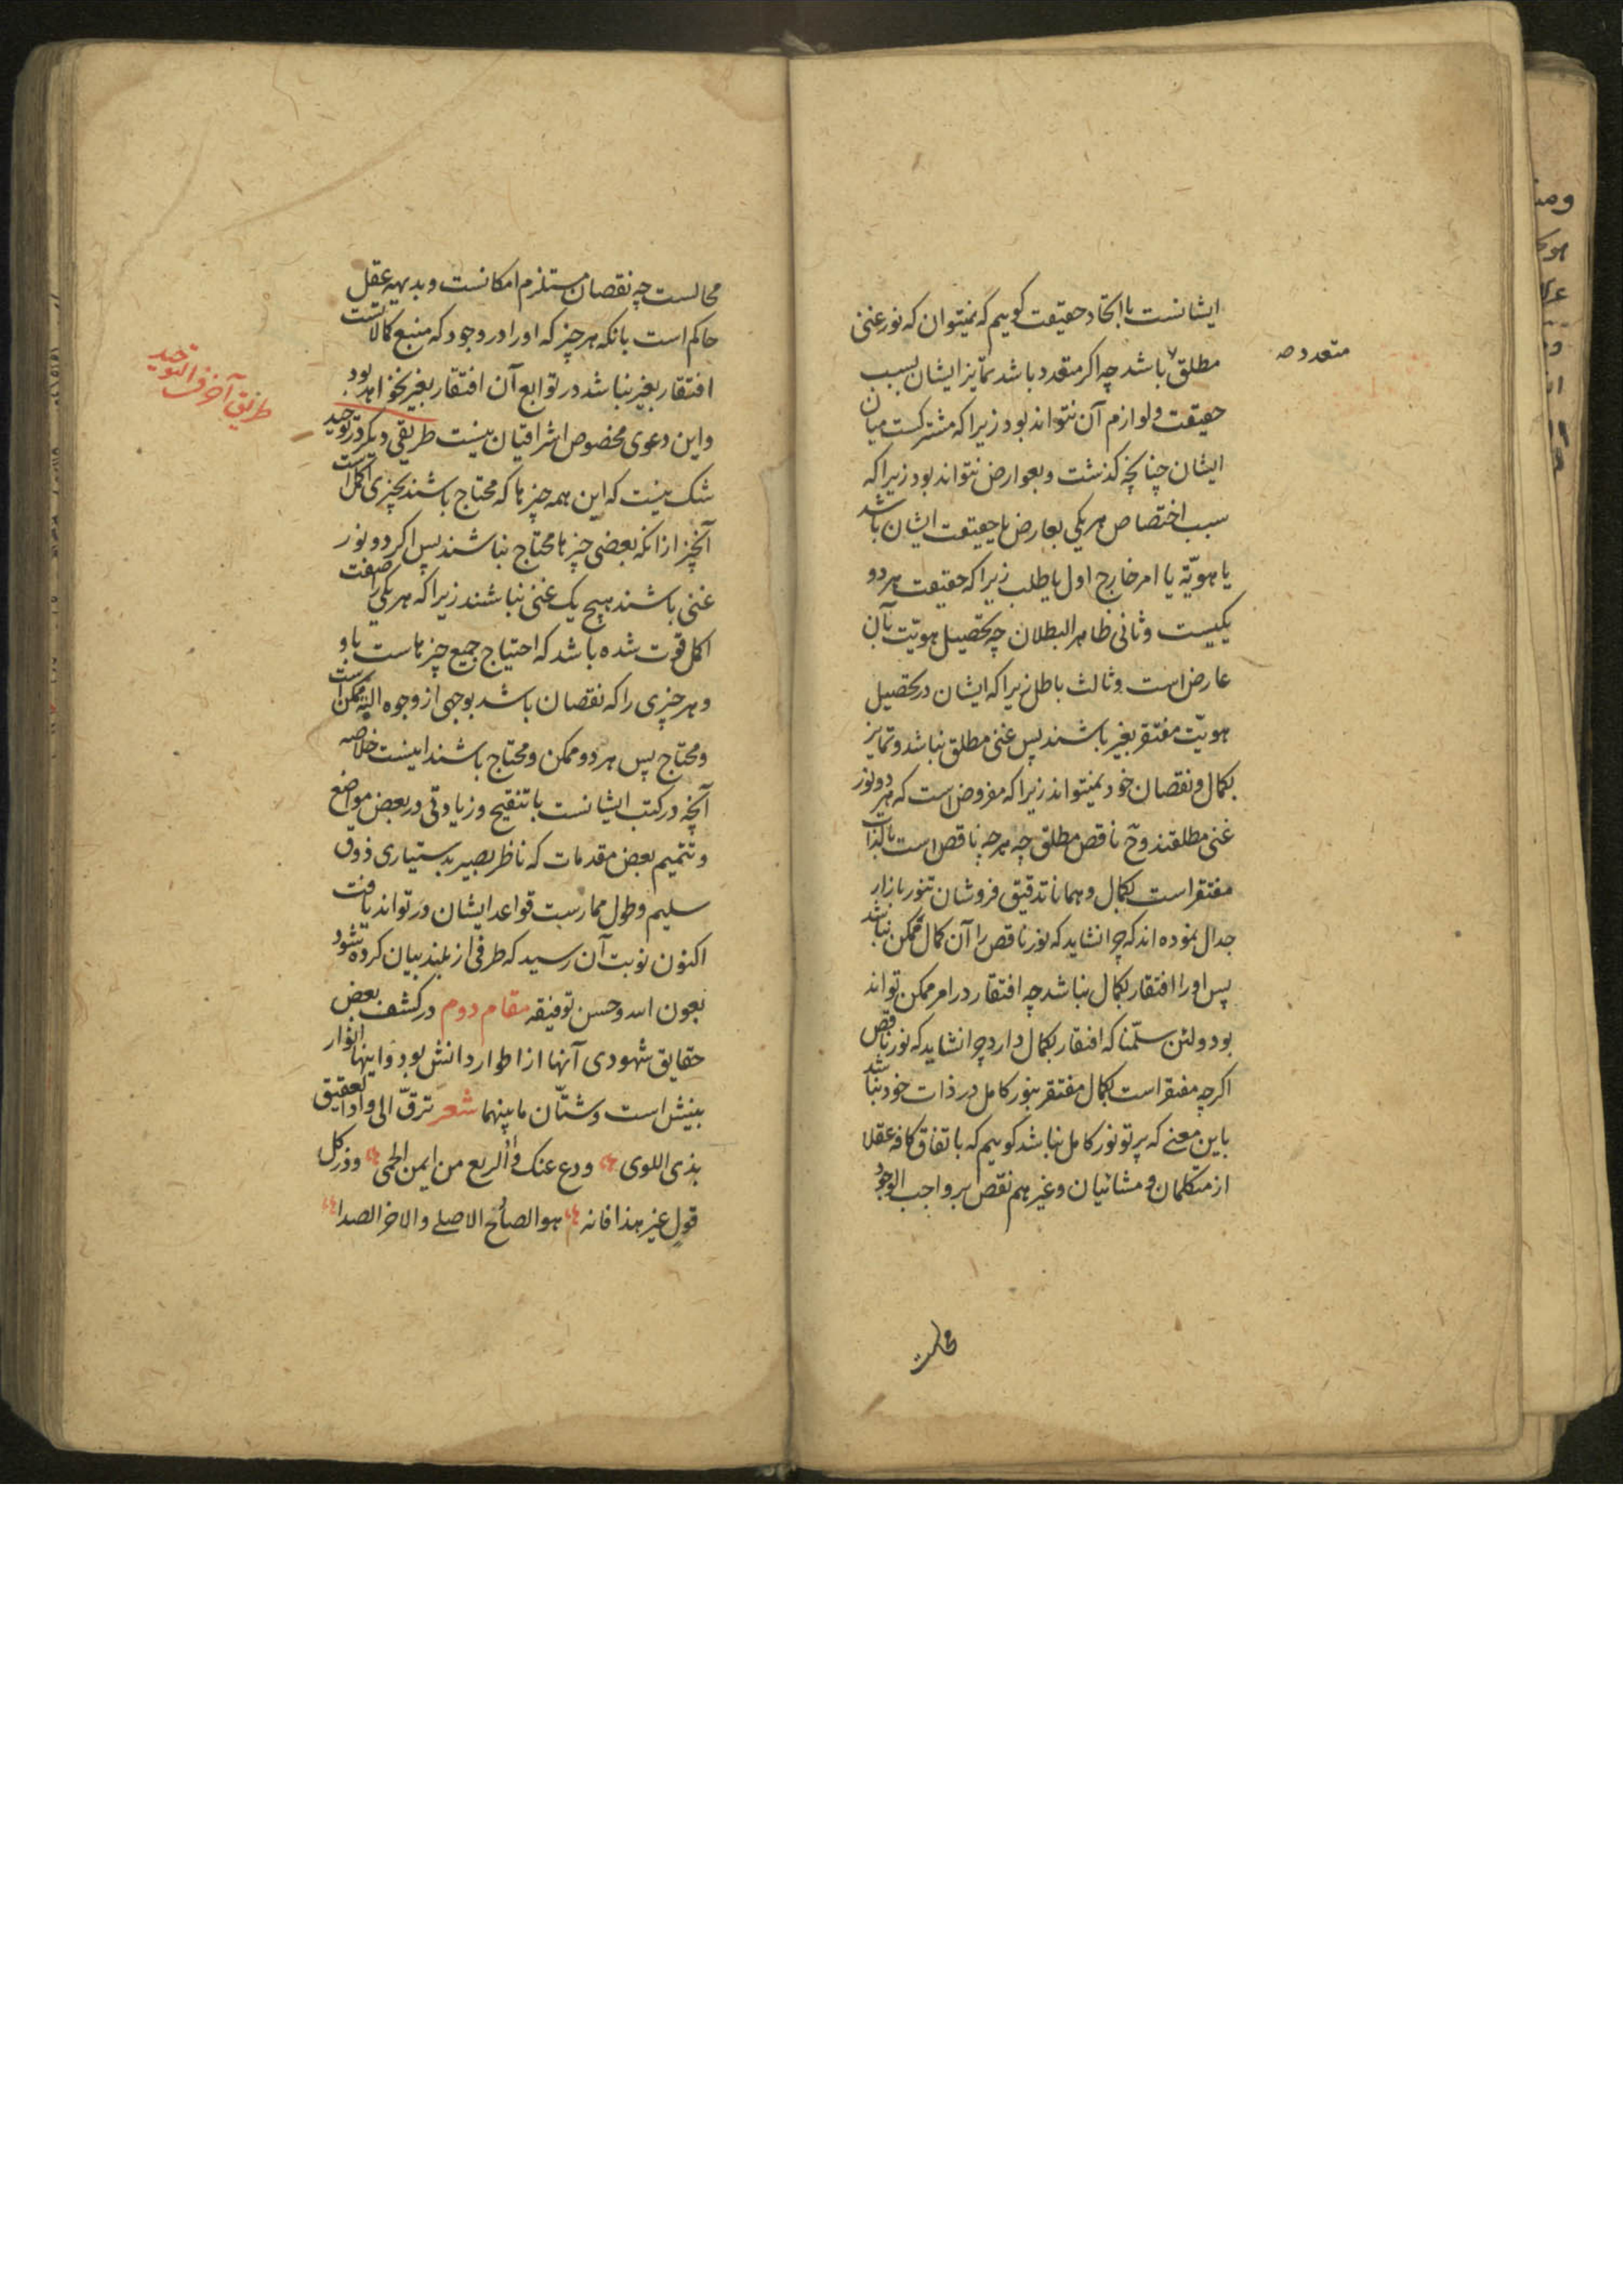 ایشانست با اتحاد حقیقت گوییم که نمیتوان که نور غنی
مطلق باشد چه اگر متعدد باشد تمایز ایشان بسبب
متعدد صح
حقیقت و لوازم آن نتواند بود زیرا که مشترکست میان
ایشان چنانچه گذشت و بعوارض نتواند بود زیرا که
سبب اختصاص هر یکی بعارض یا حقیقت ایشان باشد
یا هویّة یا امر خارج اول باطلب زیرا که حقیقت هر دو
یکیست و ثانی ظاهر البطلان چه تحصیل هویّت بآن
عارض است و ثالث باطل زیرا که ایشان در تحصیل
هویّت مفتقر بغیر باشند پس غنی مطلق نباشد و تمایز
بکمال و نقصان خود نمیتواند زیرا که مفروض است که هر دو نور
غنی مطلقند و ح ناقص مطلق چه هرچه ناقص است بالذات
مفتقر است بکمال و همانا تدقیق فروشان تنور بازار
جدال نموده اند که چرا نشاید که نور ناقص را آن کمال ممکن نباشد
پس او را افتقار بکمال نباشد چه افتقار در امر ممکن تواند
بود و لئن سلّمنا که افتقار بکمال دارد چرا نشاید که نور ناقص
اگرچه مفتقر است بکمال مفتقر بنور کامل در ذات خود نباشد
باین معنے که پرتو نور کامل نباشد گوییم که باتفاق کافه عقلا
از متکلمان و مشائیان و غیرهم نقص بر واجب الوجود
محالست
محالست چه نقصان مستلزم امکانست و بدیهه عقل
حاکم است بانکه هر چیز که او را در وجود که منبع کمالاتست
افتقار بغیر نباشد در توابع آن افتقار بغیر نخواهد بود
طریق آخر فی التوحید
و این دعوی مخصوص اشراقیان نیست طریقی دیگر در توحید
شک نیست که این همه چیزها که محتاج باشند بچیزی اکمل است
آنچیز از انکه بعضی چیزها محتاج نباشند پس اگر دو نور
غنی باشند هیچ یک غنی نباشند زیرا که هر یکی را صفت
اکمل فوت شده باشد که احتیاج جمیع چیزهاست باو
و هر چیزی را که نقصان باشد بوجهی از وجوه البته ممکن است
و محتاج پس هر دو ممکن و محتاج باشند اینست خلاصه
آنچه در کتب ایشانست با تنقیح و زیادتی در بعض مواضع
و تتمیم بعض مقدمات که ناظر بصیر بدستیاری ذوق
سلیم و طول ممارست قواعد ایشان در تواند یافت
اکنون نوبت آن رسید که طرفی از بیان کرده شود
بعون الله و حسن توفیقه مقام دوم در کشف بعض
حقایق شهودی آنها از اطوار دانش بود و اینها انوار
بینش است و شتّان ما بینهما شعر ترقّ الی وادی العقیق
بذی اللوی و دع عنک ذا الربع من ایمن الحمی و ذر کل
قولٍ غیر هذا فانه هو الصائح الاصلے والاخر الصدا